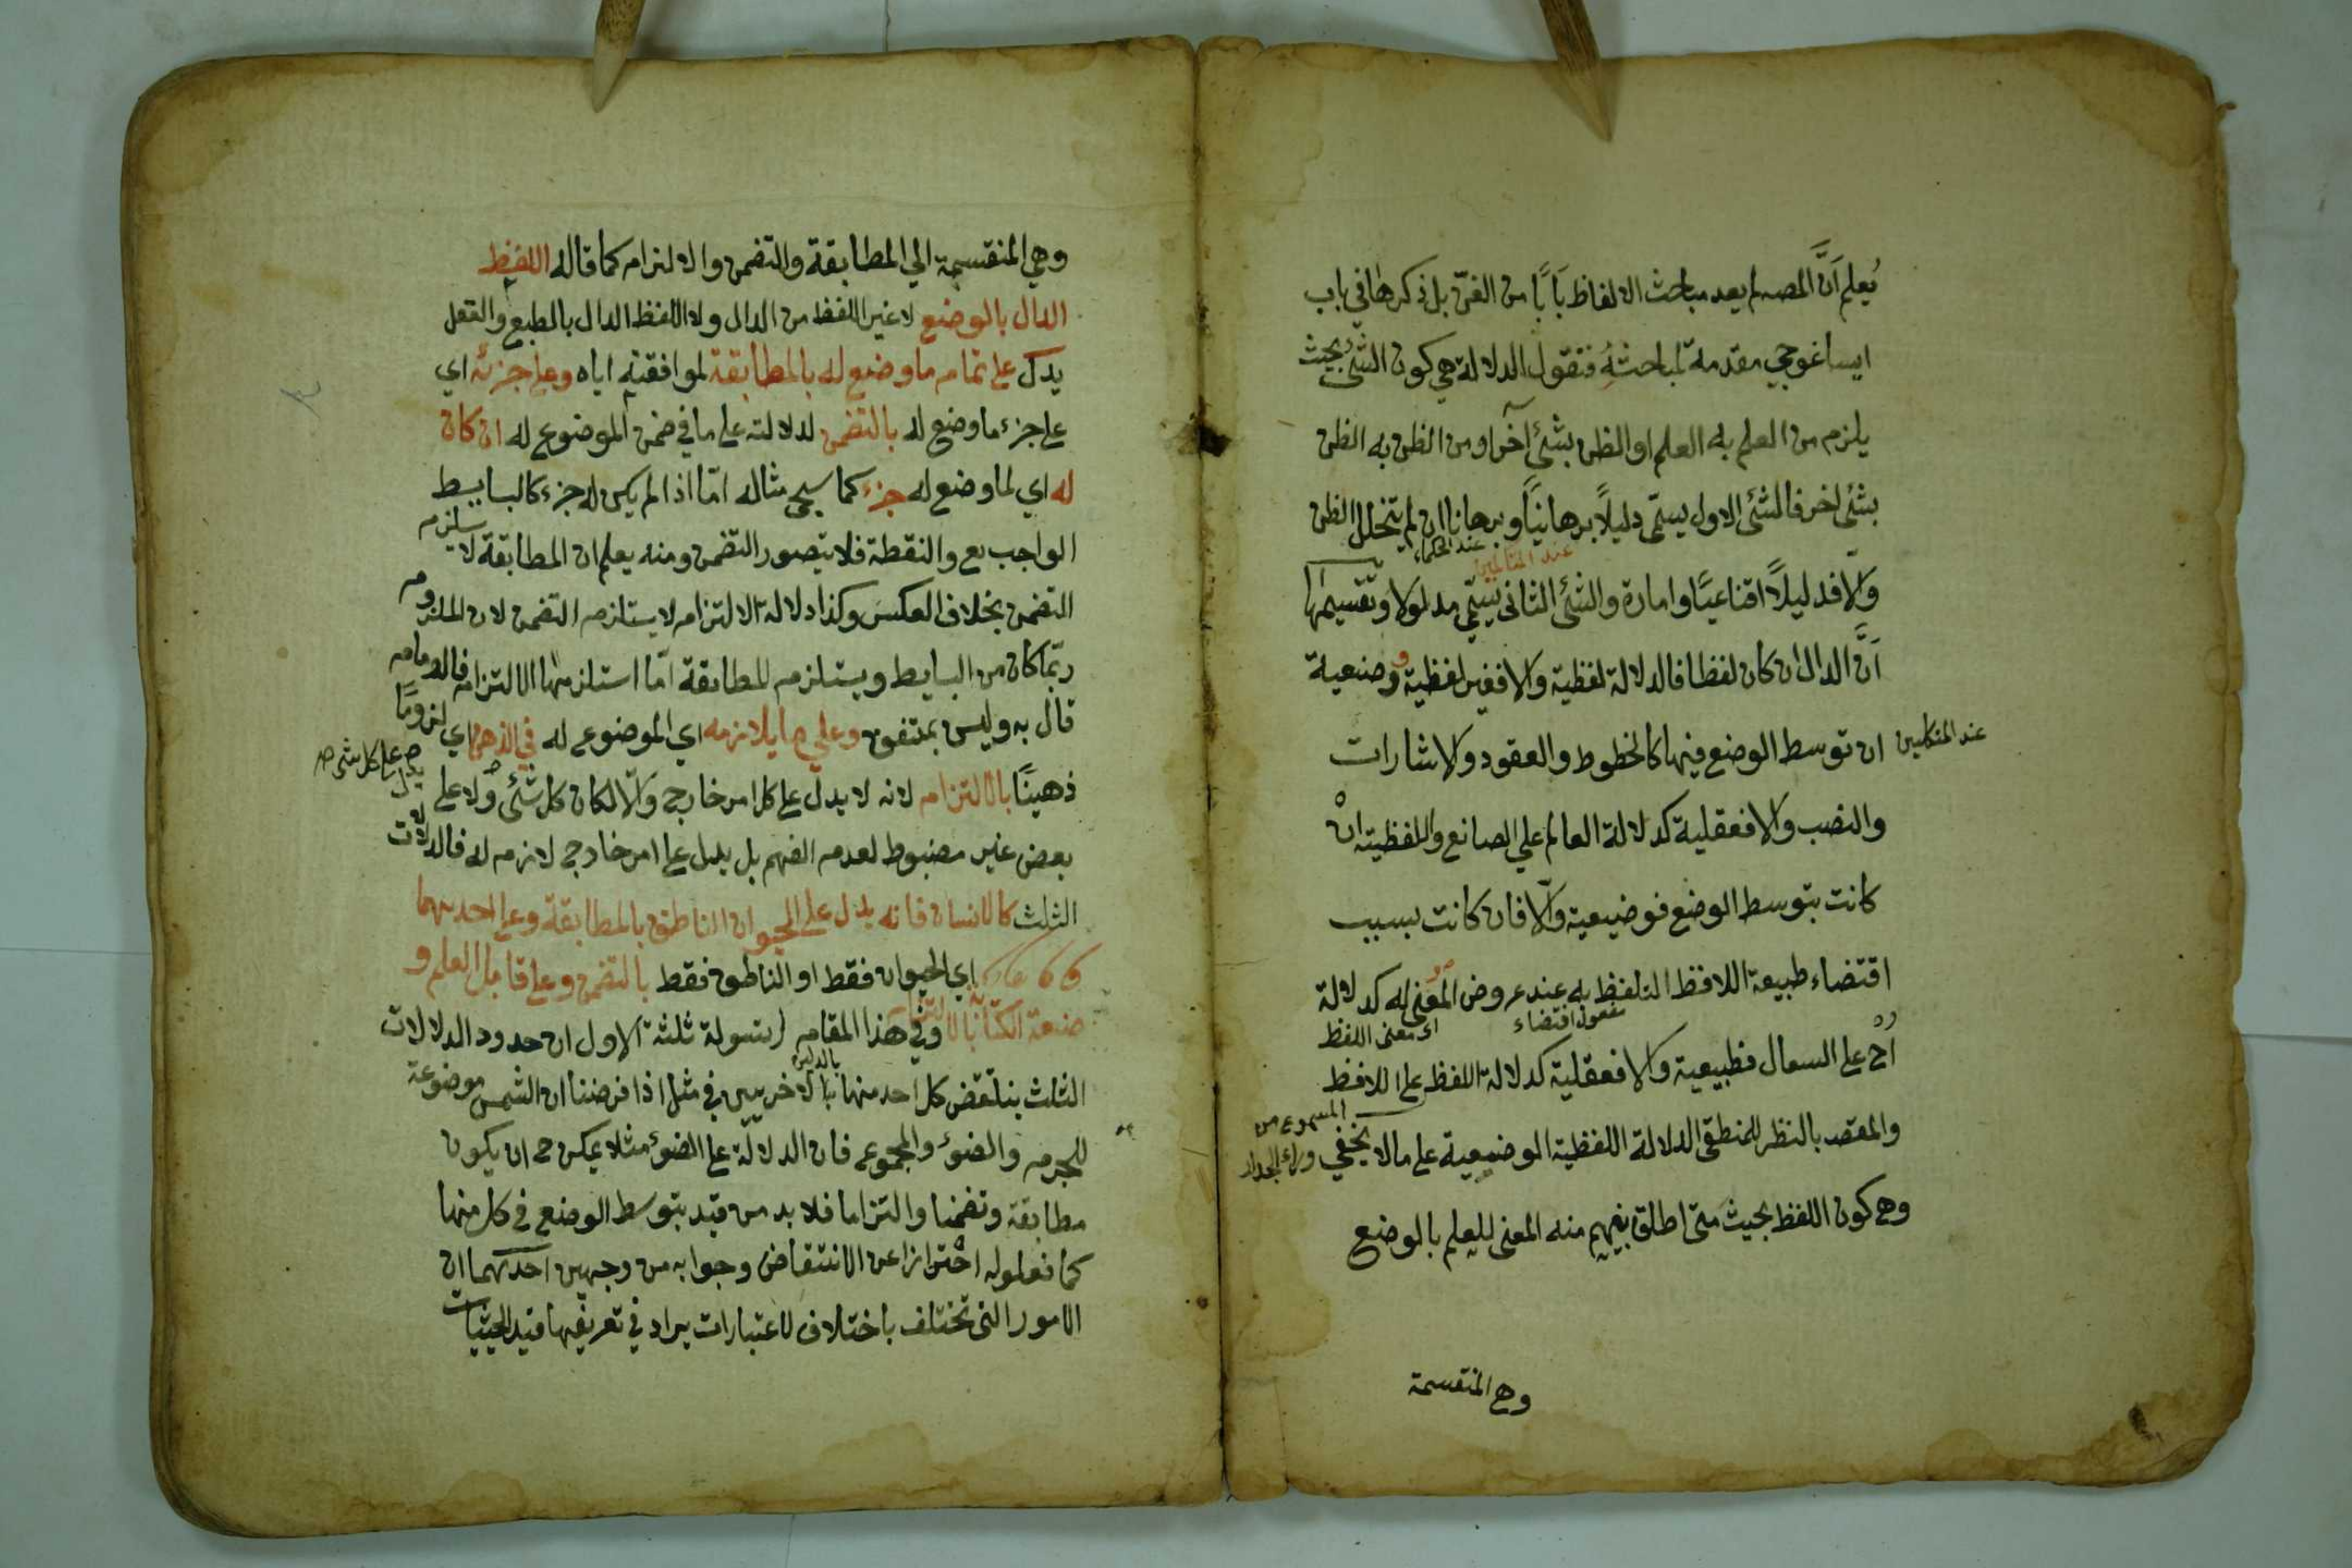 يُعلم اَنَّ المصـ لم يعد مباحث الالفاظ بَابًا من الفنّ بل ذكرها في باب
ايساغوجي مقدمة لمباحثه فنقول الدلالة هي كون الشئ بحيث
يلزم من العلم به العلم او الظن بشئ آخر او من الظن به الظن
بشئ اخر فالشئ الاول يسمّى دليلاً برهانيّا وبرهانا ان لم يتخلل الظن
عند الحكماء
والّا فدليلاً اقناعيّا وامارة والشئ الثانى يسمّى مدلولا وتقسيمها
اَنَّ الدال ان كان لفظا فالدلالة لفظية والا فغير لفظية وضعية
عند المتكلمين
ان توسط الوضع فيها كالخطوط والعقود والاشارات
والنصب والا فعقلية كدلالة العالم على الصانع واللفظية ان
كانت بتوسط الوضع فوضيعية والّا فان كانت بسبب
اقتضاء طبيعة اللافظ التلفظ به عند عروض المعنى له كدلالة
مفعول اقتضاء
اى معنى اللفظ
اُحْ على السعال فطبيعية والا فعقلية كدلالة اللفظ على اللافظ
المسموع من
وراء الجدار
والمقصد بالنظر للمنطقى الدلالة اللفظية الوضيعية على مالا يخفي
وهي كون اللفظ بحيث متى اطلق يفهم منه المعنى للعلم بالوضع
وهي المنقسمة
وهي المنقسمة الي المطابقة والتضمن والالتزام كما قاله اللفظ
الدال بالوضع لا غير اللفظ من الدال ولا اللفظ الدال بالطبع والعقل
يدل على تمام ما وضع له بالمطابقة لموافقته اياه وعلى جزئه اي
على جزء ما وضع له بالتضمن لدلالته على ما في ضمن الموضوع له ان كان
له اي لما وضع له جزء كما سيجى مثاله امّا اذا لم يكن له جزء كالبسايط
الواجب تع والنقطة فلا يتصور التضمن ومنه يعلم ان المطابقة لا يستلزم
التضمن بخلاف العكس وكذا دلالة الالتزام لا يستلزم التضمن لان الملزوم
ربّما كان من البسايط ويستلزم للمطابقة امّا استلزمها الالتزام فالامام
قال به وليس بمتفق وعلي ما يلازمه اي الموضوع له في الذهن اي لزومًا
ذهينًا بالالتزام لانه لا يدل على كل امر خارج والّا لكان كل شئ ولا على
يدل على كل شئ صح
بعض غير مضبوط لعدم الفهم بل يدل على امر خارج لازم له فالدلالات
الثلث كالانسان فانه يدل على الحيوان الناطق بالمطابقة وعلى احدهما
اي الحيوان فقط او الناطق فقط بالتضمن وعلى قابل العلم و
صنعة الكتابة بالالتزام وفي هذا المقام اسولة ثلثة الاول ان حدود الدلالات
الثلث ينتقض كل احد منها بالاخريين في مثل اذا فرضنا ان الشمس موضوعة
للجرم والضوء والمجموع فان الدلالة على الضوء مثلا يمكن ح ان يكون
مطابقة وتضمنا والتزاما فلا بد من قيد بتوسط الوضع في كل منها
كما فعلوله احترازا عن الانتقاض وجوابه من وجهين احدهما ان
الامور التى تختلف باختلاف الاعتبارات يراد في تعريفها قيد الحيثيات